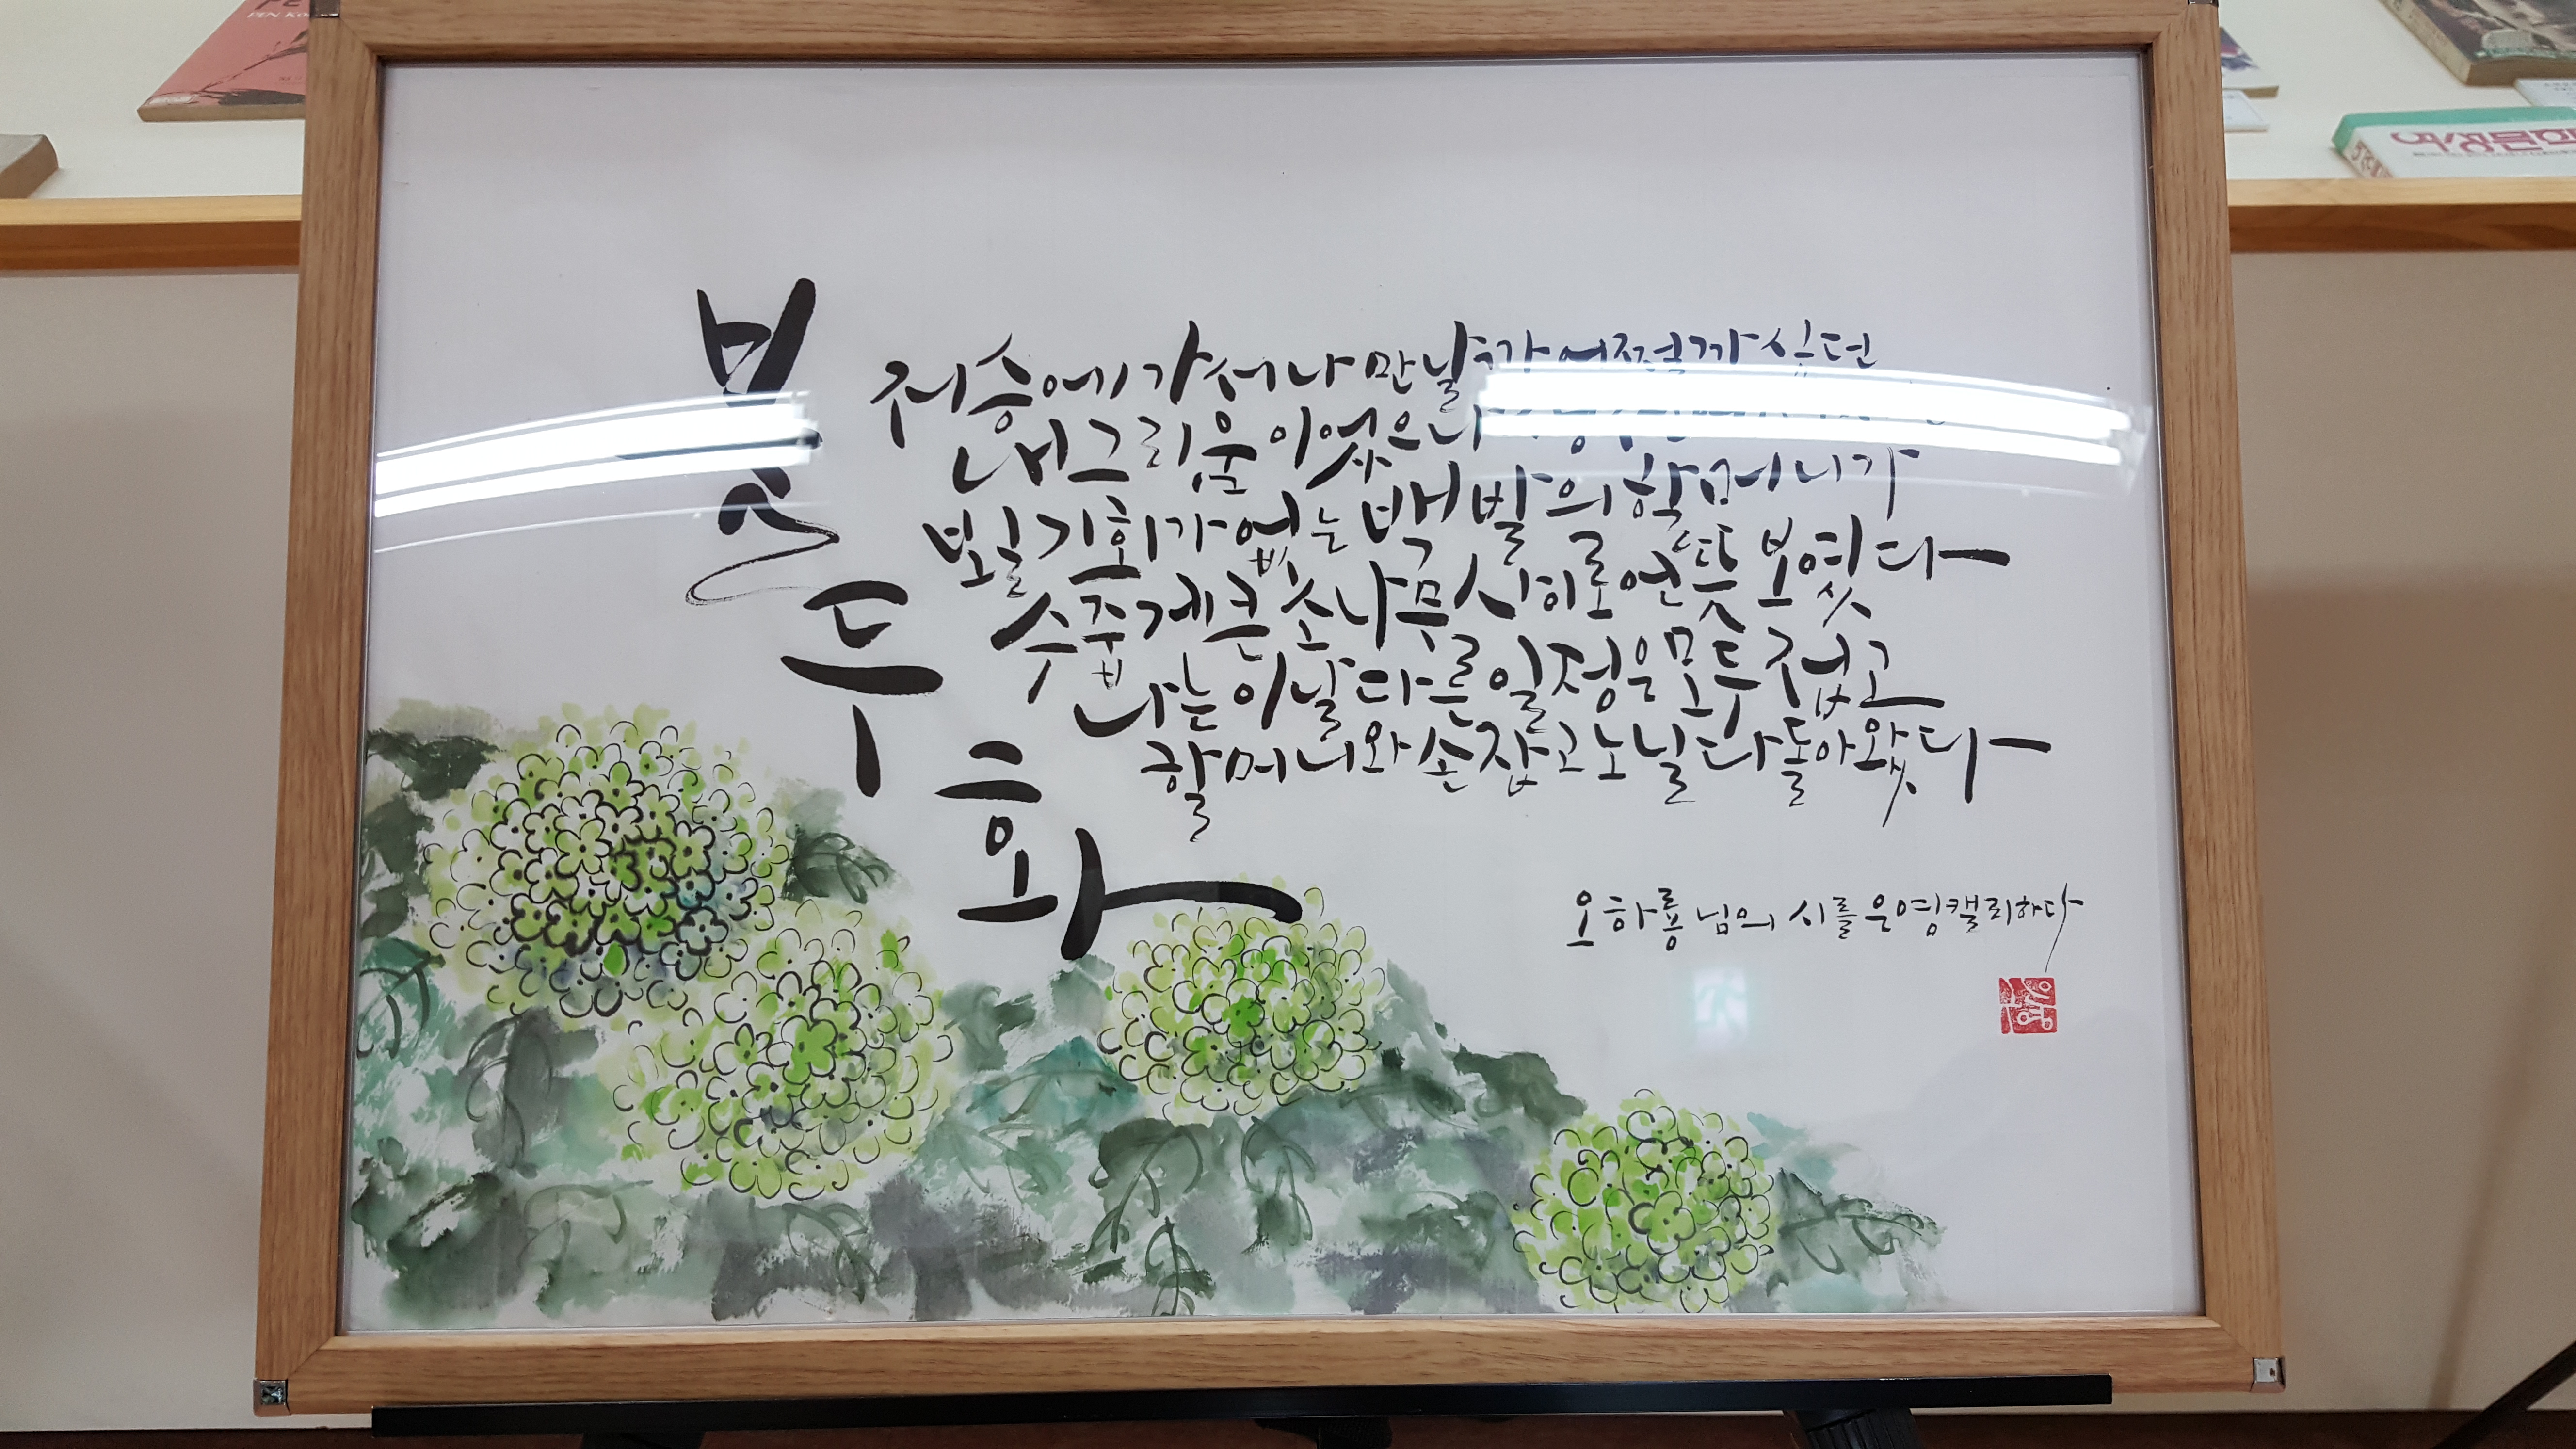 불두화
저승에 가서나 만날까 어쩔까 싶던
내 그리움이었으나
보일 기회가 없는 백발의 할머니가
수줍게 큰 소나무 사이로 언뜻 보였다
나는 이날 다른 일정은 모두 접고
할머니와 손잡고 노닐다 돌아왔다
오하룡님의 시를 운영캘리하다
PEN KO
여성문학